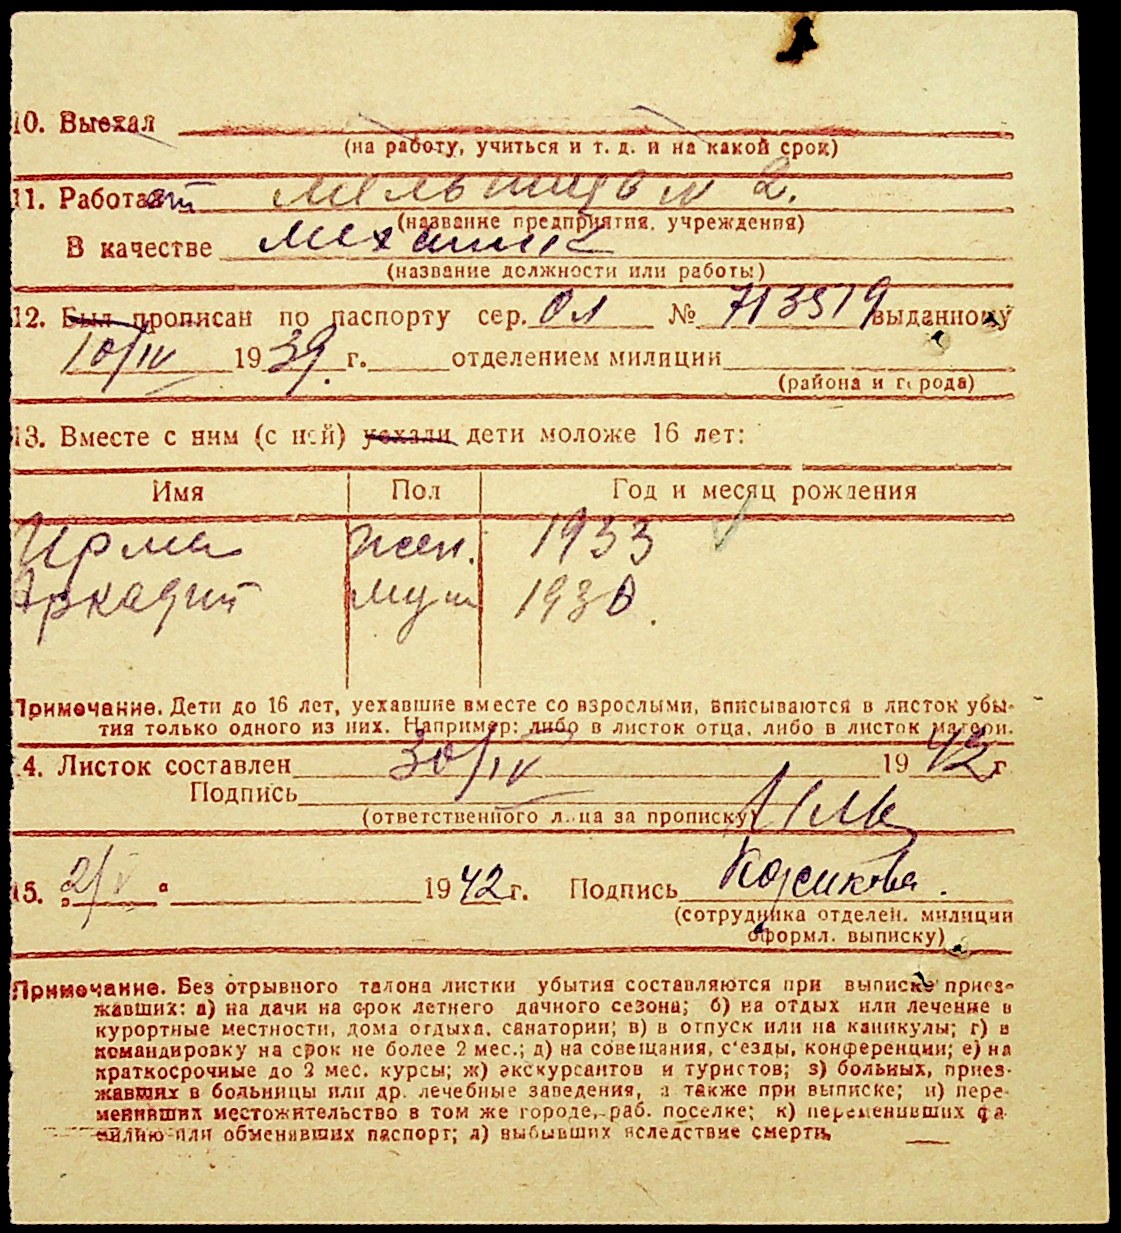 10. Выехал
(на работу, учиться и т. д. и на какой срок)
11. Работает мельница № 2.
(название предприятия, учреждения)
В качестве механик
(название должности или работы)
12. Был прописан по паспорту сер. ОЛ № 713519 выданному
10/IV 1939 г. отделением милиции
(района и города)
13. Вместе с ним (с ней) уехали дети моложе 16 лет:
Имя Пол Год и месяц рождения
Ирма жен. 1933
Аркадий муж 1930.
Примечание. Дети до 16 лет, уехавшие вместе со взрослыми, вписываются в листок убы-
тия только одного из них. Например: либо в листок отца, либо в листок матери.
14. Листок составлен 30/IV 1942 г
Подпись
(ответственного лица за прописку)
15. „2/V" 1942 г. Подпись Кожикова.
(сотрудника отделен. милиции
оформл. выписку)
Примечание. Без отрывного талона листки убытия составляются при выписке приез-
жавших: а) на дачи на срок летнего дачного сезона; б) на отдых или лечение в
курортные местности, дома отдыха, санатории; в) в отпуск или на каникулы; г) в
командировку на срок не более 2 мес.; д) на совещания, с'езды, конференции; е) на
краткосрочные до 2 мес. курсы; ж) экскурсантов и туристов; з) больных, приез-
жавших в больницы или др. лечебные заведения, а также при выписке; и) пере-
менивших местожительство в том же городе, раб. поселке; к) переменивших фа-
милию или обменявших паспорт; л) выбывших вследствие смерти.